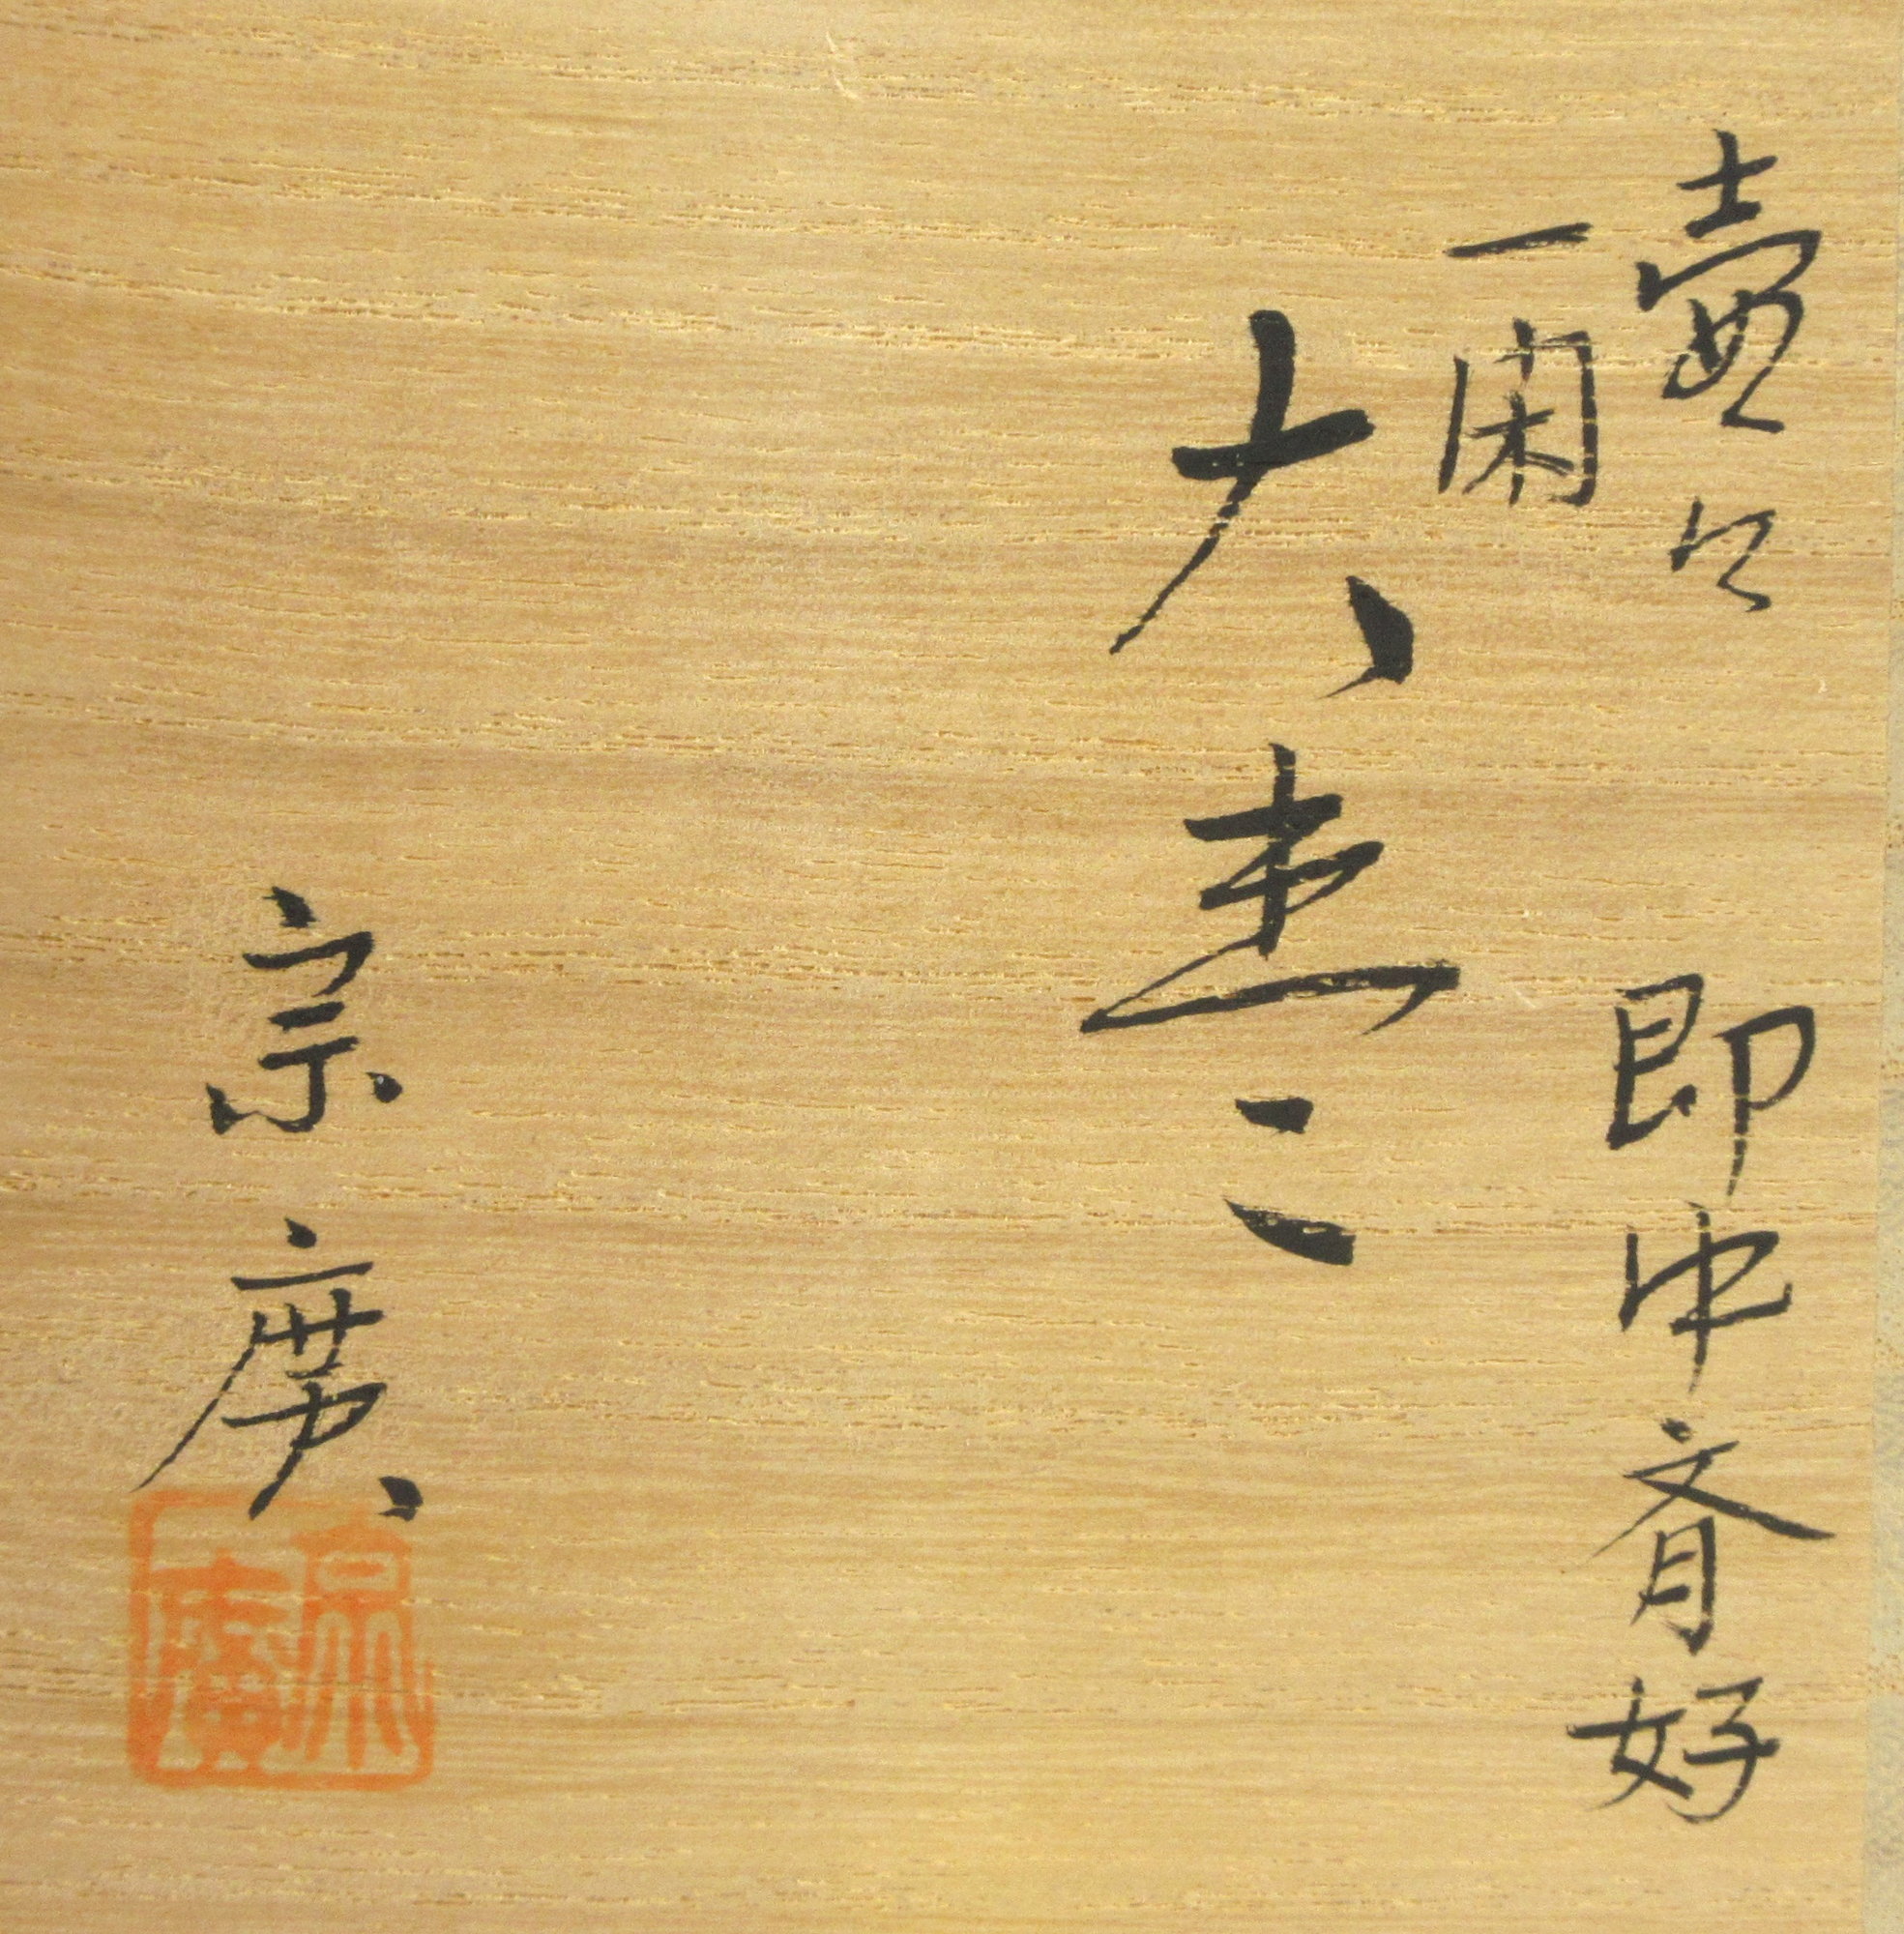 壺々 即中斉好
一閑
大棗
宗廣
宗廣